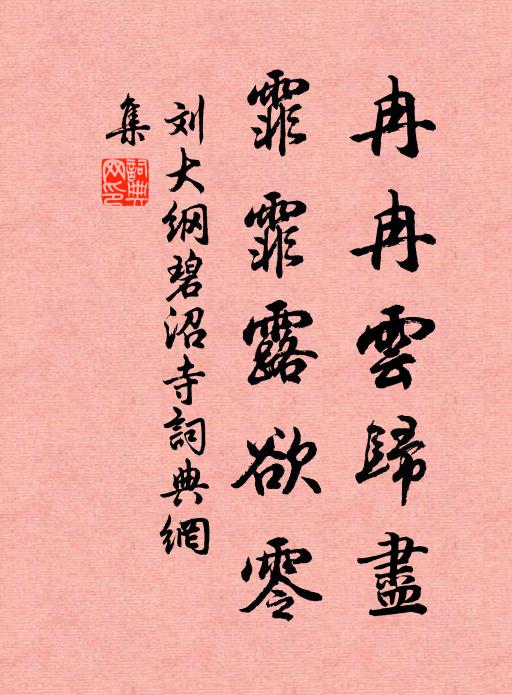 冉冉雲歸盡
霏霏露欲零
刘大纲碧沼寺詞典網
集
詞典網印